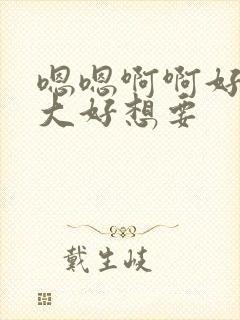 嗯嗯啊啊好
大好想要
戴生岐